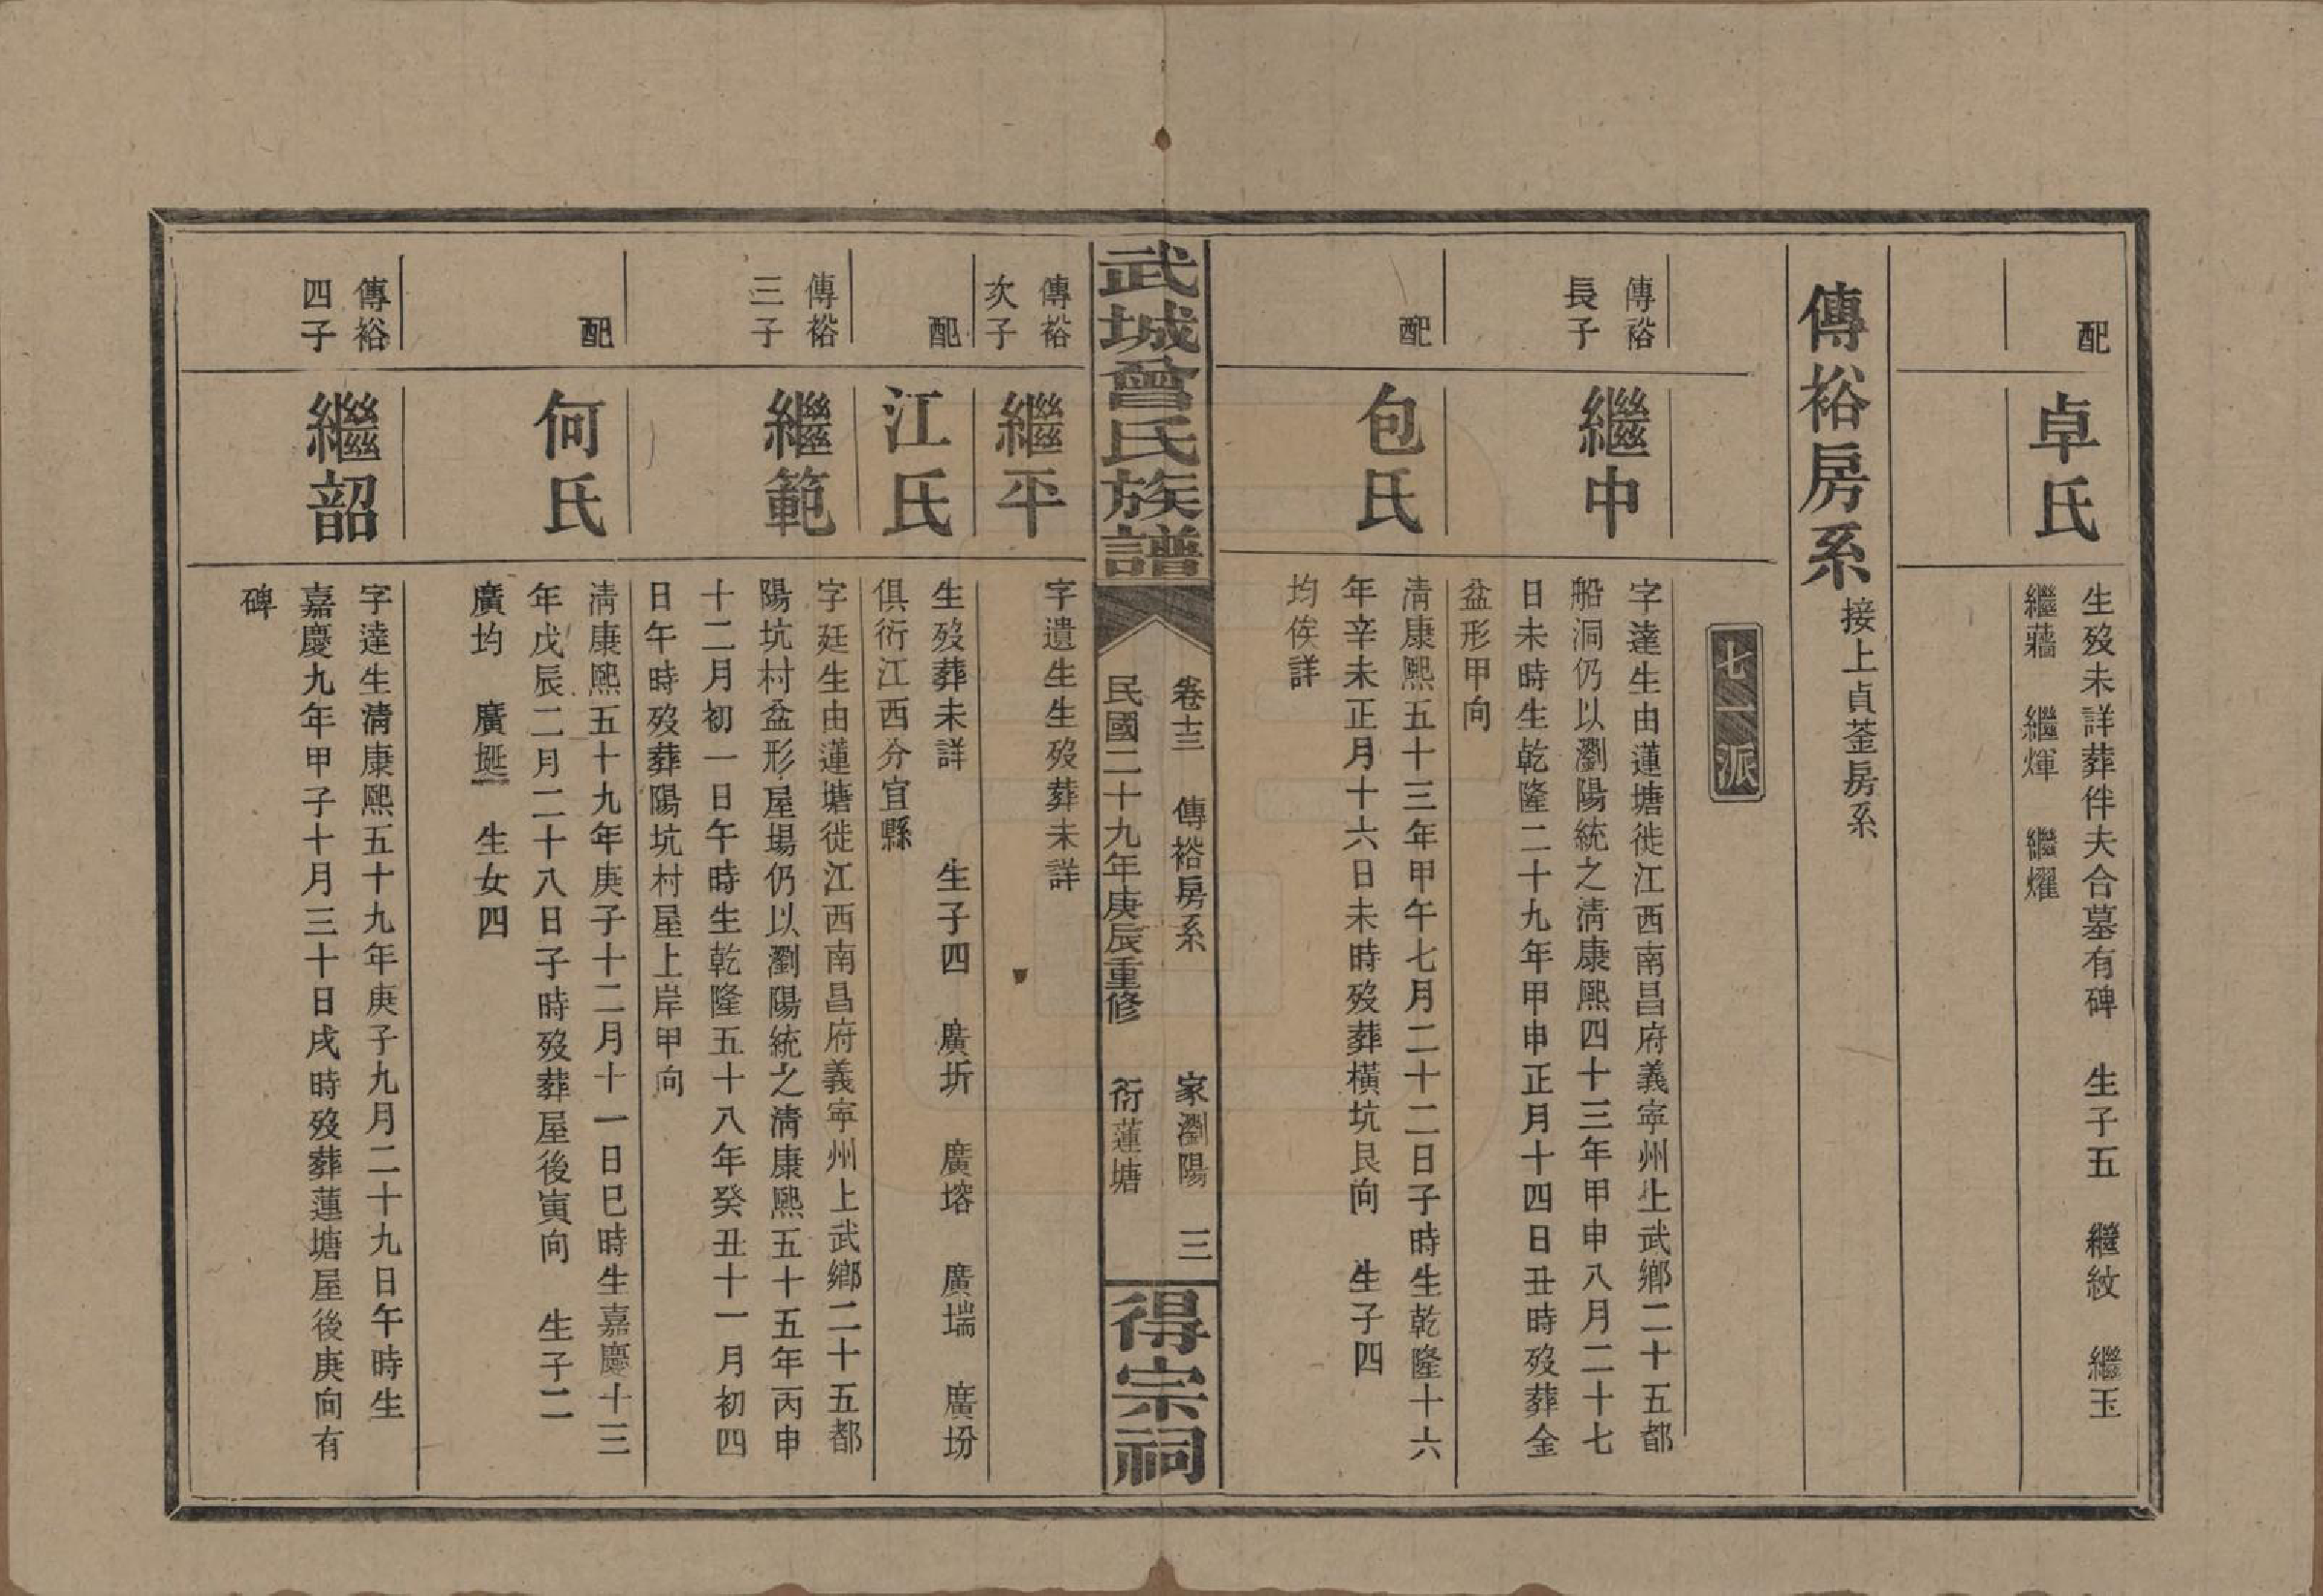 配
卓氏
生歿未詳葬伴夫合墓有碑　生子五　繼紋　繼玉
繼蘠　繼煇　繼燿
傳裕房系
接上貞荃房系
七一派
傳裕
長子
繼中
字達生由蓮塘徙江西南昌府義寧州上武鄉二十五都
船洞仍以瀏陽統之清康熙四十三年甲申八月二十七
日未時生乾隆二十九年甲申正月十四日丑時歿葬金
盆形甲向
配
包氏
清康熙五十三年甲午七月二十二日子時生乾隆十六
年辛未正月十六日未時歿葬橫坑艮向　生子四
均俟詳
武城曾氏族譜
卷十三　傳裕房系　家瀏陽　三
民國二十九年庚辰重修　衍蓮塘
得宗祠
傳裕
次子
繼平
字遺生生歿葬未詳
配
江氏
生歿葬未詳　生子四　廣圻　廣塎　廣瑞　廣坋
俱衍江西分宜縣
傳裕
三子
繼範
字廷生由蓮塘徙江西南昌府義寧州上武鄉二十五都
陽坑村盆形屋場仍以瀏陽統之清康熙五十五年丙申
十二月初一日午時生乾隆五十八年癸丑十一月初四
日午時歿葬陽坑村屋上岸甲向
配
何氏
清康熙五十九年庚子十二月十一日巳時生嘉慶十三
年戊辰二月二十八日子時歿葬屋後寅向　生子二
廣均　廣埏　生女四
傳裕
四子
繼韶
字達生清康熙五十九年庚子九月二十九日午時生
嘉慶九年甲子十月三十日戌時歿葬蓮塘屋後庚向有
碑